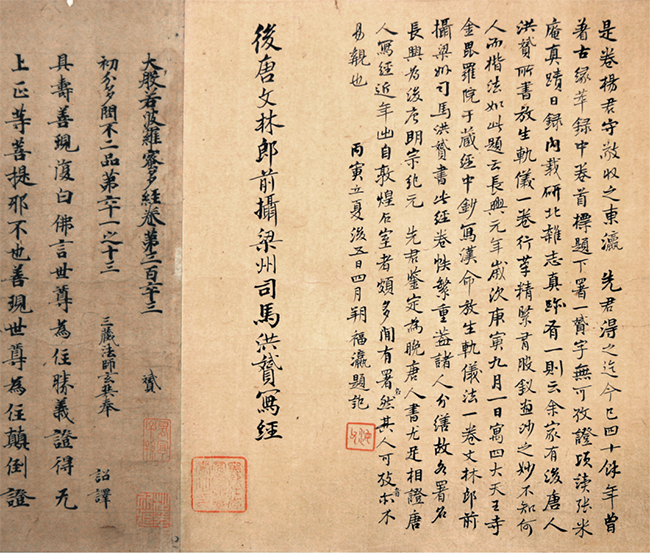 是卷楊君守敬收之東瀛 先君得之迄今已四十餘年曾
著古緣萃録中卷首標題下署一贊字無可攷證頃讀張米
庵真蹟日録內載研北雜志真跡者一則云余家有後唐人
洪贊所書放生軌儀一卷行草精緊有股釵畫沙之妙不知何
人而楷法如此題云長興元年歲次庚寅九月一日寓四大天王寺
金毘羅院于藏經中鈔寫漢命放生軌儀法一卷文林郎前
攝梁州司馬洪贊書此經卷帙繁重蓋諸人分繕故各署名
長興為後唐明宗紀元 先君鑒定為晚唐人書尤足相證唐
人寫經近年出自敦煌石室者頗多間有署名然其人可攷者亦不
易覯也 丙寅立夏後五日四月朔 福瀛題記
後唐文林郎前攝梁州司馬洪贊寫經
大般若波羅蜜多經卷第三百六十三 贊
初分多問不二品第六十一之十三 三藏法師玄奘奉 詔譯
具壽善現復白佛言世尊為住勝義證得无
上正等菩提耶不也善現世尊為住顛倒證